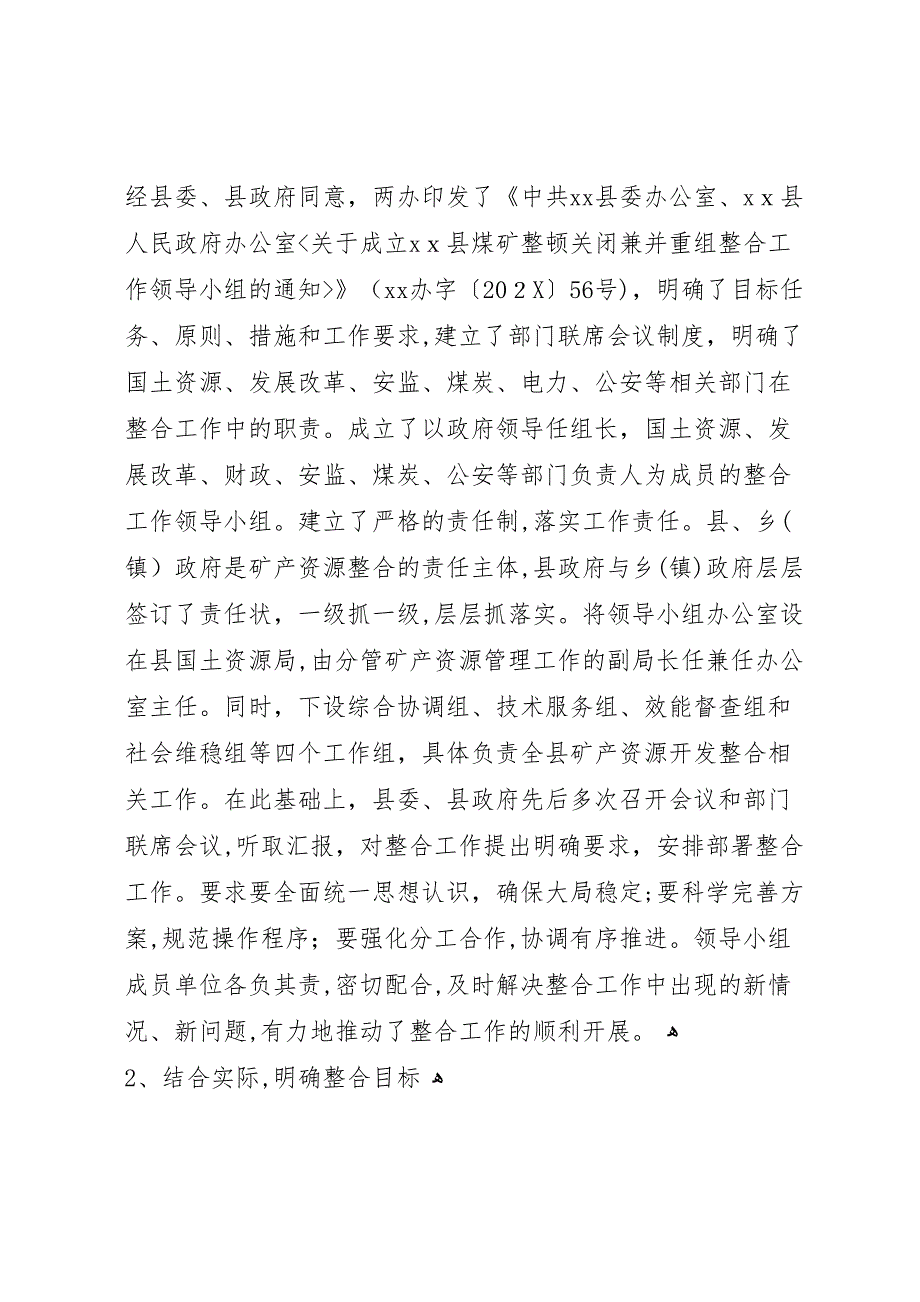 经县委、县政府同意，两办印发了《中共xx县委办公室、xｘ县
人民政府办公室<关于成立xｘ县煤矿整顿关闭兼并重组整合工
作领导小组的通知>》（xx办字〔20２X〕56号)，明确了目标任
务、原则、措施和工作要求,建立了部门联席会议制度，明确了
国土资源、发展改革、安监、煤炭、电力、公安等相关部门在
整合工作中的职责。成立了以政府领导任组长，国土资源、发
展改革、财政、安监、煤炭、公安等部门负责人为成员的整合
工作领导小组。建立了严格的责任制,落实工作责任。县、乡(
镇）政府是矿产资源整合的责任主体,县政府与乡(镇)政府层层
签订了责任状，一级抓一级,层层抓落实。将领导小组办公室设
在县国土资源局,由分管矿产资源管理工作的副局长任兼任办公
室主任。同时，下设综合协调组、技术服务组、效能督查组和
社会维稳组等四个工作组，具体负责全县矿产资源开发整合相
关工作。在此基础上，县委、县政府先后多次召开会议和部门
联席会议,听取汇报，对整合工作提出明确要求，安排部署整合
工作。要求要全面统一思想认识，确保大局稳定;要科学完善方
案,规范操作程序；要强化分工合作,协调有序推进。领导小组
成员单位各负其责,密切配合,及时解决整合工作中出现的新情
况、新问题,有力地推动了整合工作的顺利开展。ﻫ
2、结合实际,明确整合目标ﻫ